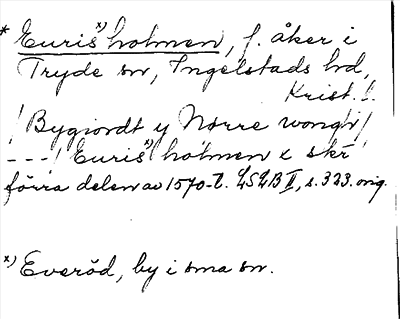 * Euris x) holmen, f. åker i
Tryde sn, Ingelstads hd,
Krist. l.
/ Bygiordt y Norre wongh /
---/ Euris x) holmen x skr
förra delen av 1570-t. LSLB II, s. 323. orig.
x) Everöd, by i sma sn.